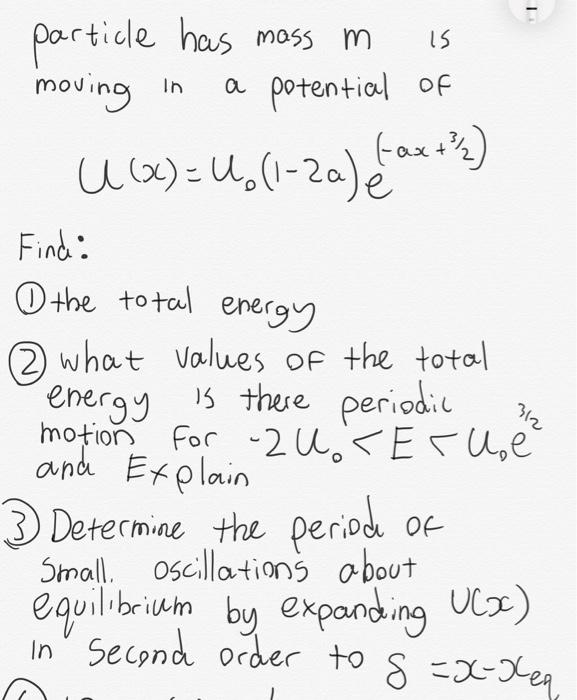 particle has mass m is
moving in a potential of
U(x) = U₀(1-2a)e^(-ax + 3/2)
Find:
① the total energy
② what values of the total
energy is there periodic
motion for -2U₀ < E < U₀e^3/2
and Explain
③ Determine the period of
Small. oscillations about
equilibrium by expanding U(x)
in second order to δ = x-xeq